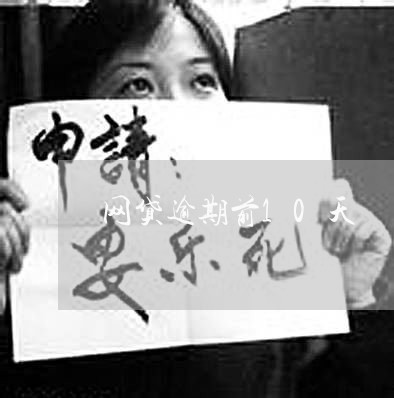 申請：
网贷逾期前10天
要乐死